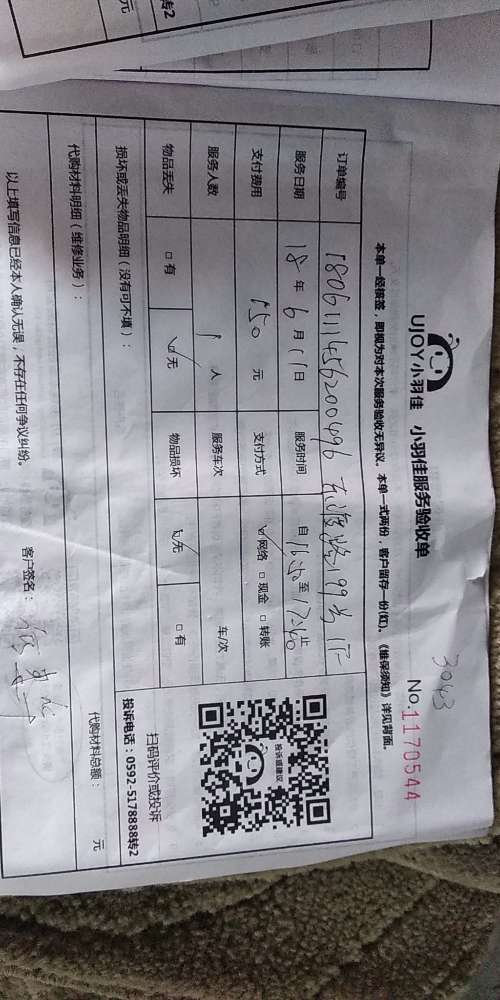 元
转2
3043
UJOY小羽佳 小羽佳服务验收单
No.1170544
本单一经核签，即视为对本次服务验收无异议。本单一式两份，客户留存一份(红)。《维保须知》详见背面。
订单编号 1806111456200496 199号
服务日期 18年6月11日 服务时间 自16:20至17:40止
支付费用 150元 支付方式 ☑网络 □现金 □转账
服务人数 1人 服务车次 车/次
物品丢失 □有 ☑无 物品损坏 ☑无 □有
损坏或丢失物品明细（没有可不填）：
代购材料明细（维修业务）：
代购材料总额： 元
以上填写信息已经本人确认无误，不存在任何争议纠纷。
客户签名：
投诉或建议
扫码评价或投诉
投诉电话：0592-5178888转2